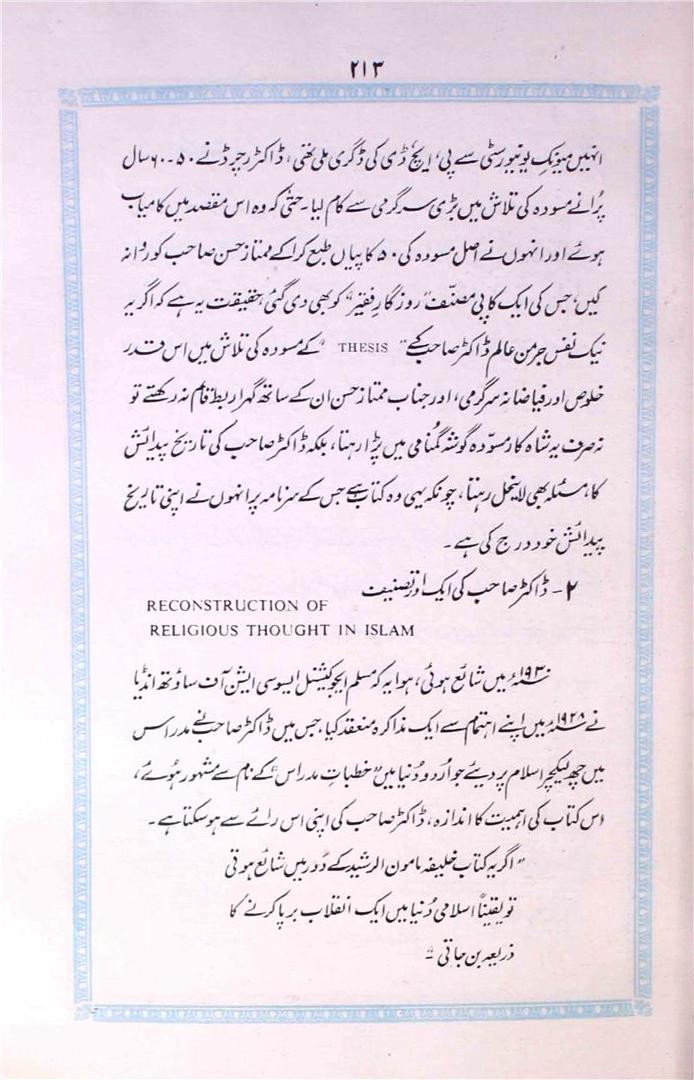 ۲۱۳
انہیں میونک یونیورسٹی سے پی، ایچ، ڈی کی ڈگری ملی تھی، ڈاکٹر رچرڈ نے ۵۰۔۶۰ سال
پُرانے مسودہ کی تلاش میں بڑی سرگرمی سے کام لیا۔ حتیٰ کہ وہ اس مقصد میں کامیاب
ہوئے اور انہوں نے اصل مسودہ کی ۵۰ کاپیاں طبع کرا کے ممتاز حسن صاحب کو روانہ
کیں، جس کی ایک کاپی مصنّف "روزگارِ فقیر" کو بھی دی گئی، حقیقت یہ ہے کہ اگر یہ
نیک نفس جرمن عالم ڈاکٹر صاحب کے "THESIS" کے مسودہ کی تلاش میں اس قدر
خلوص اور فیاضانہ سرگرمی، اور جناب ممتاز حسن ان کے ساتھ گہرا ربط قائم نہ رکھتے تو
نہ صرف یہ شاہ کار مسوّدہ گوشۂ گمنامی میں پڑا رہتا، بلکہ ڈاکٹر صاحب کی تاریخ پیدائش
کا، مسئلہ بھی لاینحل رہتا، چونکہ یہی وہ کتاب ہے جس کے سرنامہ پر انہوں نے اپنی تاریخ
پیدائش خود درج کی ہے۔
۲۔ ڈاکٹر صاحب کی ایک اور تصنیف
RECONSTRUCTION OF
RELIGIOUS THOUGHT IN ISLAM
۱۹۳۰ء میں شائع ہوئی، ہوا یہ کہ مسلم ایجوکیشنل ایسوسی ایشن آف ساؤتھ انڈیا
نے ۱۹۲۸ء میں اپنے اہتمام سے ایک مذاکرہ منعقد کیا، جس میں ڈاکٹر صاحب نے مدراس
میں چھ لیکچر اسلام پر دیئے جو اُردو دُنیا میں "خطباتِ مدراس" کے نام سے مشہور ہُوئے،
اس کتاب کی اہمیت کا اندازہ، ڈاکٹر صاحب کی اپنی اس رائے سے ہو سکتا ہے۔
"اگر یہ کتاب خلیفہ مامون الرشید کے دَور میں شائع ہوتی
تو یقیناً اسلامی دُنیا میں ایک انقلاب برپا کرنے کا
ذریعہ بن جاتی"۔